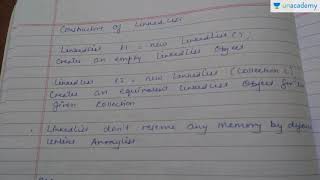 unacademy
Constructor of LinkedList
LinkedList l1 = new LinkedList ( ) ;
Creates an empty LinkedList Object
LinkedList l2 = new LinkedList (Collection c)
Creates an equivalent LinkedList Object for the
given Collection
LinkedList don't reserve any memory by default
unless ArrayList